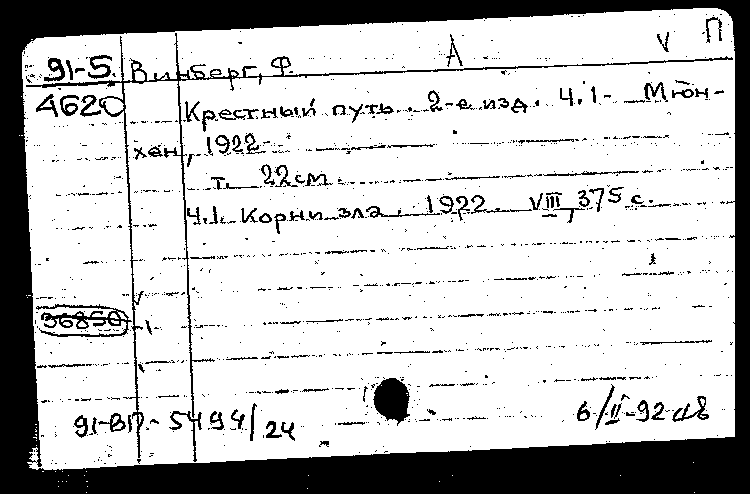 А V П
91-5 Винберг, Ф.
4620 Крестный путь. 2-е изд. Ч.1- Мюн-
хен, 1922-
т. 22см.
Ч.1. Корни зла. 1922. VIII, 375 с.
36850
91-ВП-5494/24 6/II-92